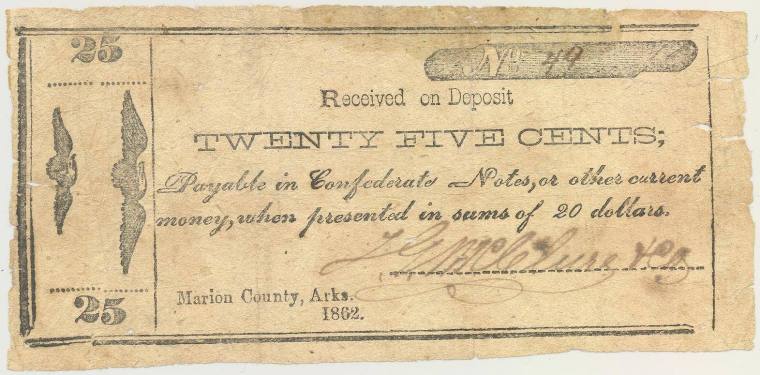 25
No 49
Received on Deposit
TWENTY FIVE CENTS;
Payable in Confederate Notes, or other current
money, when presented in sums of 20 dollars.
McClure & Co
Marion County, Arks.
1862.
25